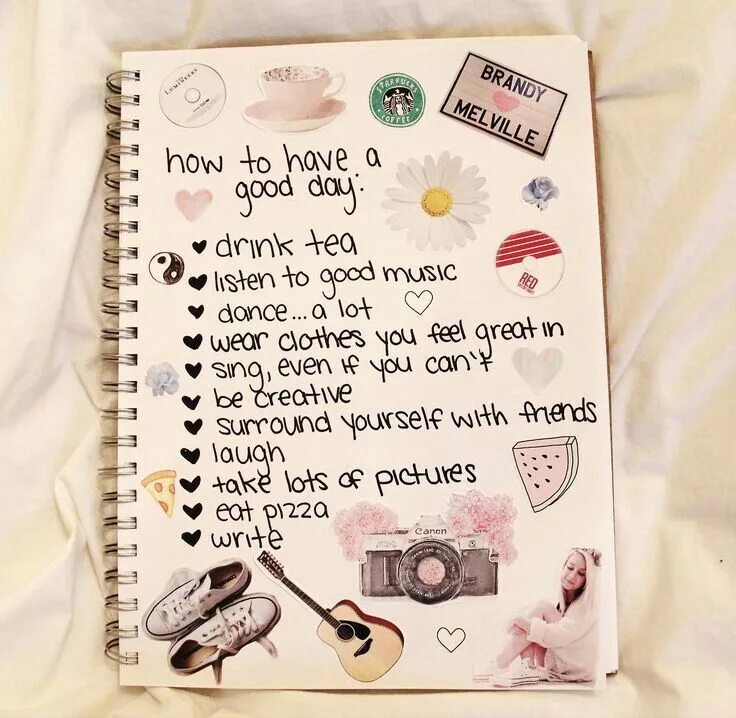 THE
LUMINEERS
STARBUCKS
COFFEE
BRANDY
MELVILLE
how to have a
good day:
drink tea
listen to good music
RED
dance... a lot
wear clothes you feel great in
sing, even if you can't
be creative
surround yourself with friends
laugh
take lots of pictures
eat pizza
write
Canon